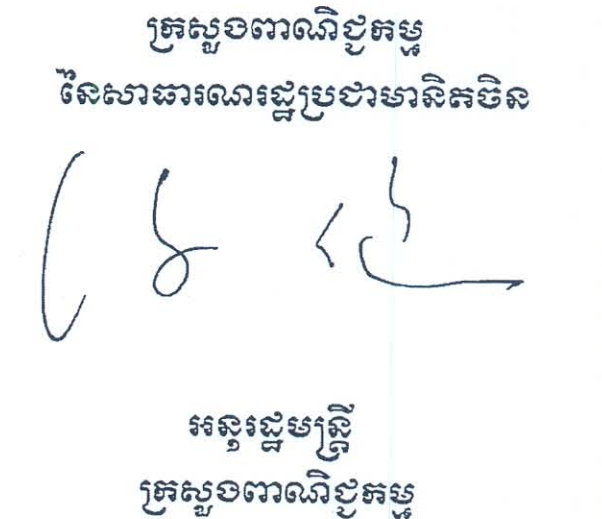 ក្រសួងពាណិជ្ជកម្ម
នៃសាធារណរដ្ឋប្រជាមានិតចិន
អនុរដ្ឋមន្ត្រី
ក្រសួងពាណិជ្ជកម្ម